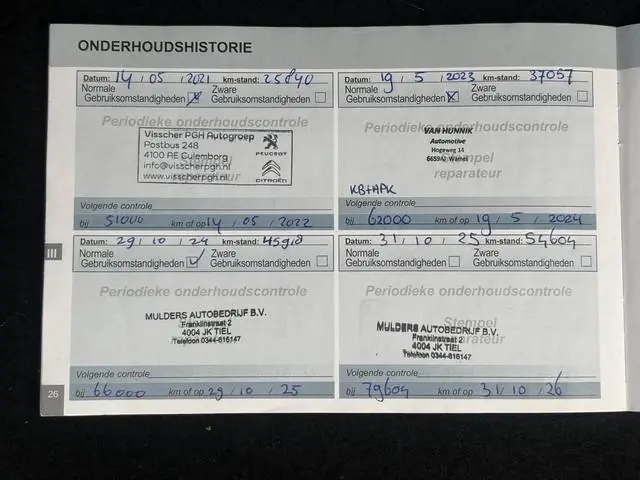 ONDERHOUDSHISTORIE
Datum: 14 / 05 / 2021 km-stand: 25840
Normale Gebruiksomstandigheden Zware Gebruiksomstandigheden
Periodieke onderhoudscontrole
Visscher PGH Autogroep
Postbus 248
4100 AE Culemborg
info@visscherpgh.nl
www.visscherpgh.nl
PEUGEOT
CITROËN
Volgende controle
bij 51000 km of op 14 / 05 / 2022
Datum: 19 / 5 / 2023 km-stand: 37057
Normale Gebruiksomstandigheden Zware Gebruiksomstandigheden
Periodieke onderhoudscontrole
VAN HUNNIK
Automotive
Hogeweg 14
Stempel
reparateur
KB+APK
Volgende controle
bij 62000 km of op 19 / 5 / 2024
Datum: 29 / 10 / 24 km-stand: 45918
Normale Gebruiksomstandigheden Zware Gebruiksomstandigheden
Periodieke onderhoudscontrole
MULDERS AUTOBEDRIJF B.V.
Franklinstraat 2
4004 JK TIEL
Telefoon 0344-616147
Volgende controle
bij 66000 km of op 29 / 10 / 25
Datum: 31 / 10 / 25 km-stand: 54604
Normale Gebruiksomstandigheden Zware Gebruiksomstandigheden
Periodieke onderhoudscontrole
Stempel
reparateur
MULDERS AUTOBEDRIJF B.V.
Franklinstraat 2
4004 JK TIEL
Telefoon 0344-616147
Volgende controle
bij 79604 km of op 31 / 10 / 26
III
26